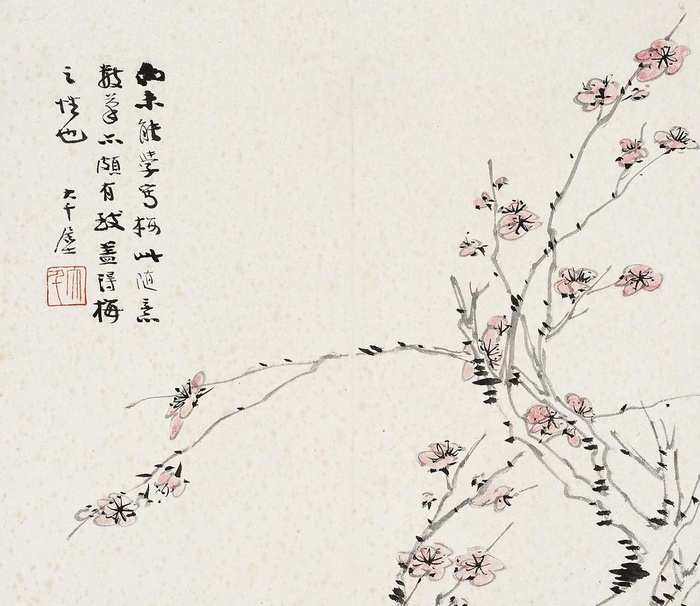 未能學寫梅此隨意
數筆亦頗有致蓋得梅
之情也
大千
大千